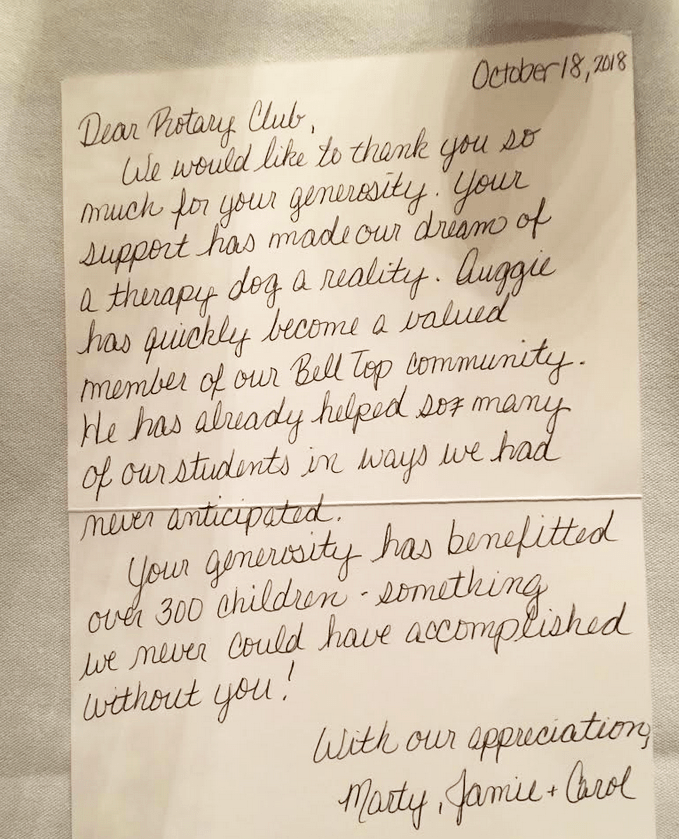 October 18, 2018
Dear Rotary Club,
We would like to thank you so
much for your generosity. Your
support has made our dream of
a therapy dog a reality. Auggie
has quickly become a valued
member of our Bell Top community.
He has already helped so many
of our students in ways we had
never anticipated.
Your generosity has benefitted
over 300 children - something
we never could have accomplished
without you!
With our appreciation,
Marty, Jamie + Carol